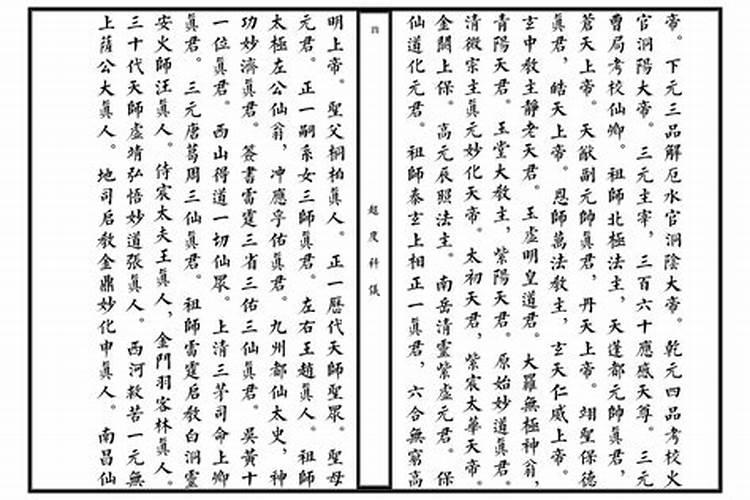 帝。下元三品解厄水官洞陰大帝。乾元四品考校火
官洞陽大帝。三元主宰,三百六十應感天尊。三元
曹局考校仙卿。祖師北極法主,天蓬都元帥眞君,
蒼天上帝。天猷副元帥眞君,丹天上帝。翊聖保德
眞君,皓天上帝。恩師萬法教主,玄天仁威上帝。
玄中教主靜老天君。玉虛明皇道君。大羅無極神翁,
青陽天君。玉堂大教主,紫陽天君。原始妙道眞君。
清微宗主眞元妙化天帝。太初天君,紫宸太華天帝。
金闕上保。高元辰照法主。南岳清靈紫虛元君。保
仙道化元君。祖師泰玄上相正一眞君,六合無窮高
四
超度科儀
明上帝。聖父桐柏眞人。正一歷代天師聖眾。聖母
元君。正一嗣系女三師眞君。左右王趙眞人。祖師
太極左公仙翁,冲應孚佑眞君。九州都仙太史,神
功妙濟眞君。簽書雷霆三省三佑三仙眞君。吳黃十
一位眞君。西山得道一切仙眾。上清三茅司命上卿
眞君。三元唐葛周三仙眞君。祖師雷霆启教白洞靈
安火師汪眞人。侍宸太夫王眞人,金門羽客林眞人。
三十代天師虛靖弘悟妙道張眞人。西河救苦一元無
上薩公大眞人。地司启教金鼎妙化申眞人。南昌仙